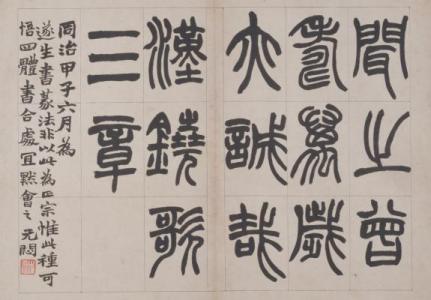 聞之曾
壽萬歲
亦誠哉
漢鐃歌
三章
同治甲子六月為
遂生書篆法非以此為正宗惟此種可
悟四體書合處宜默會之无悶